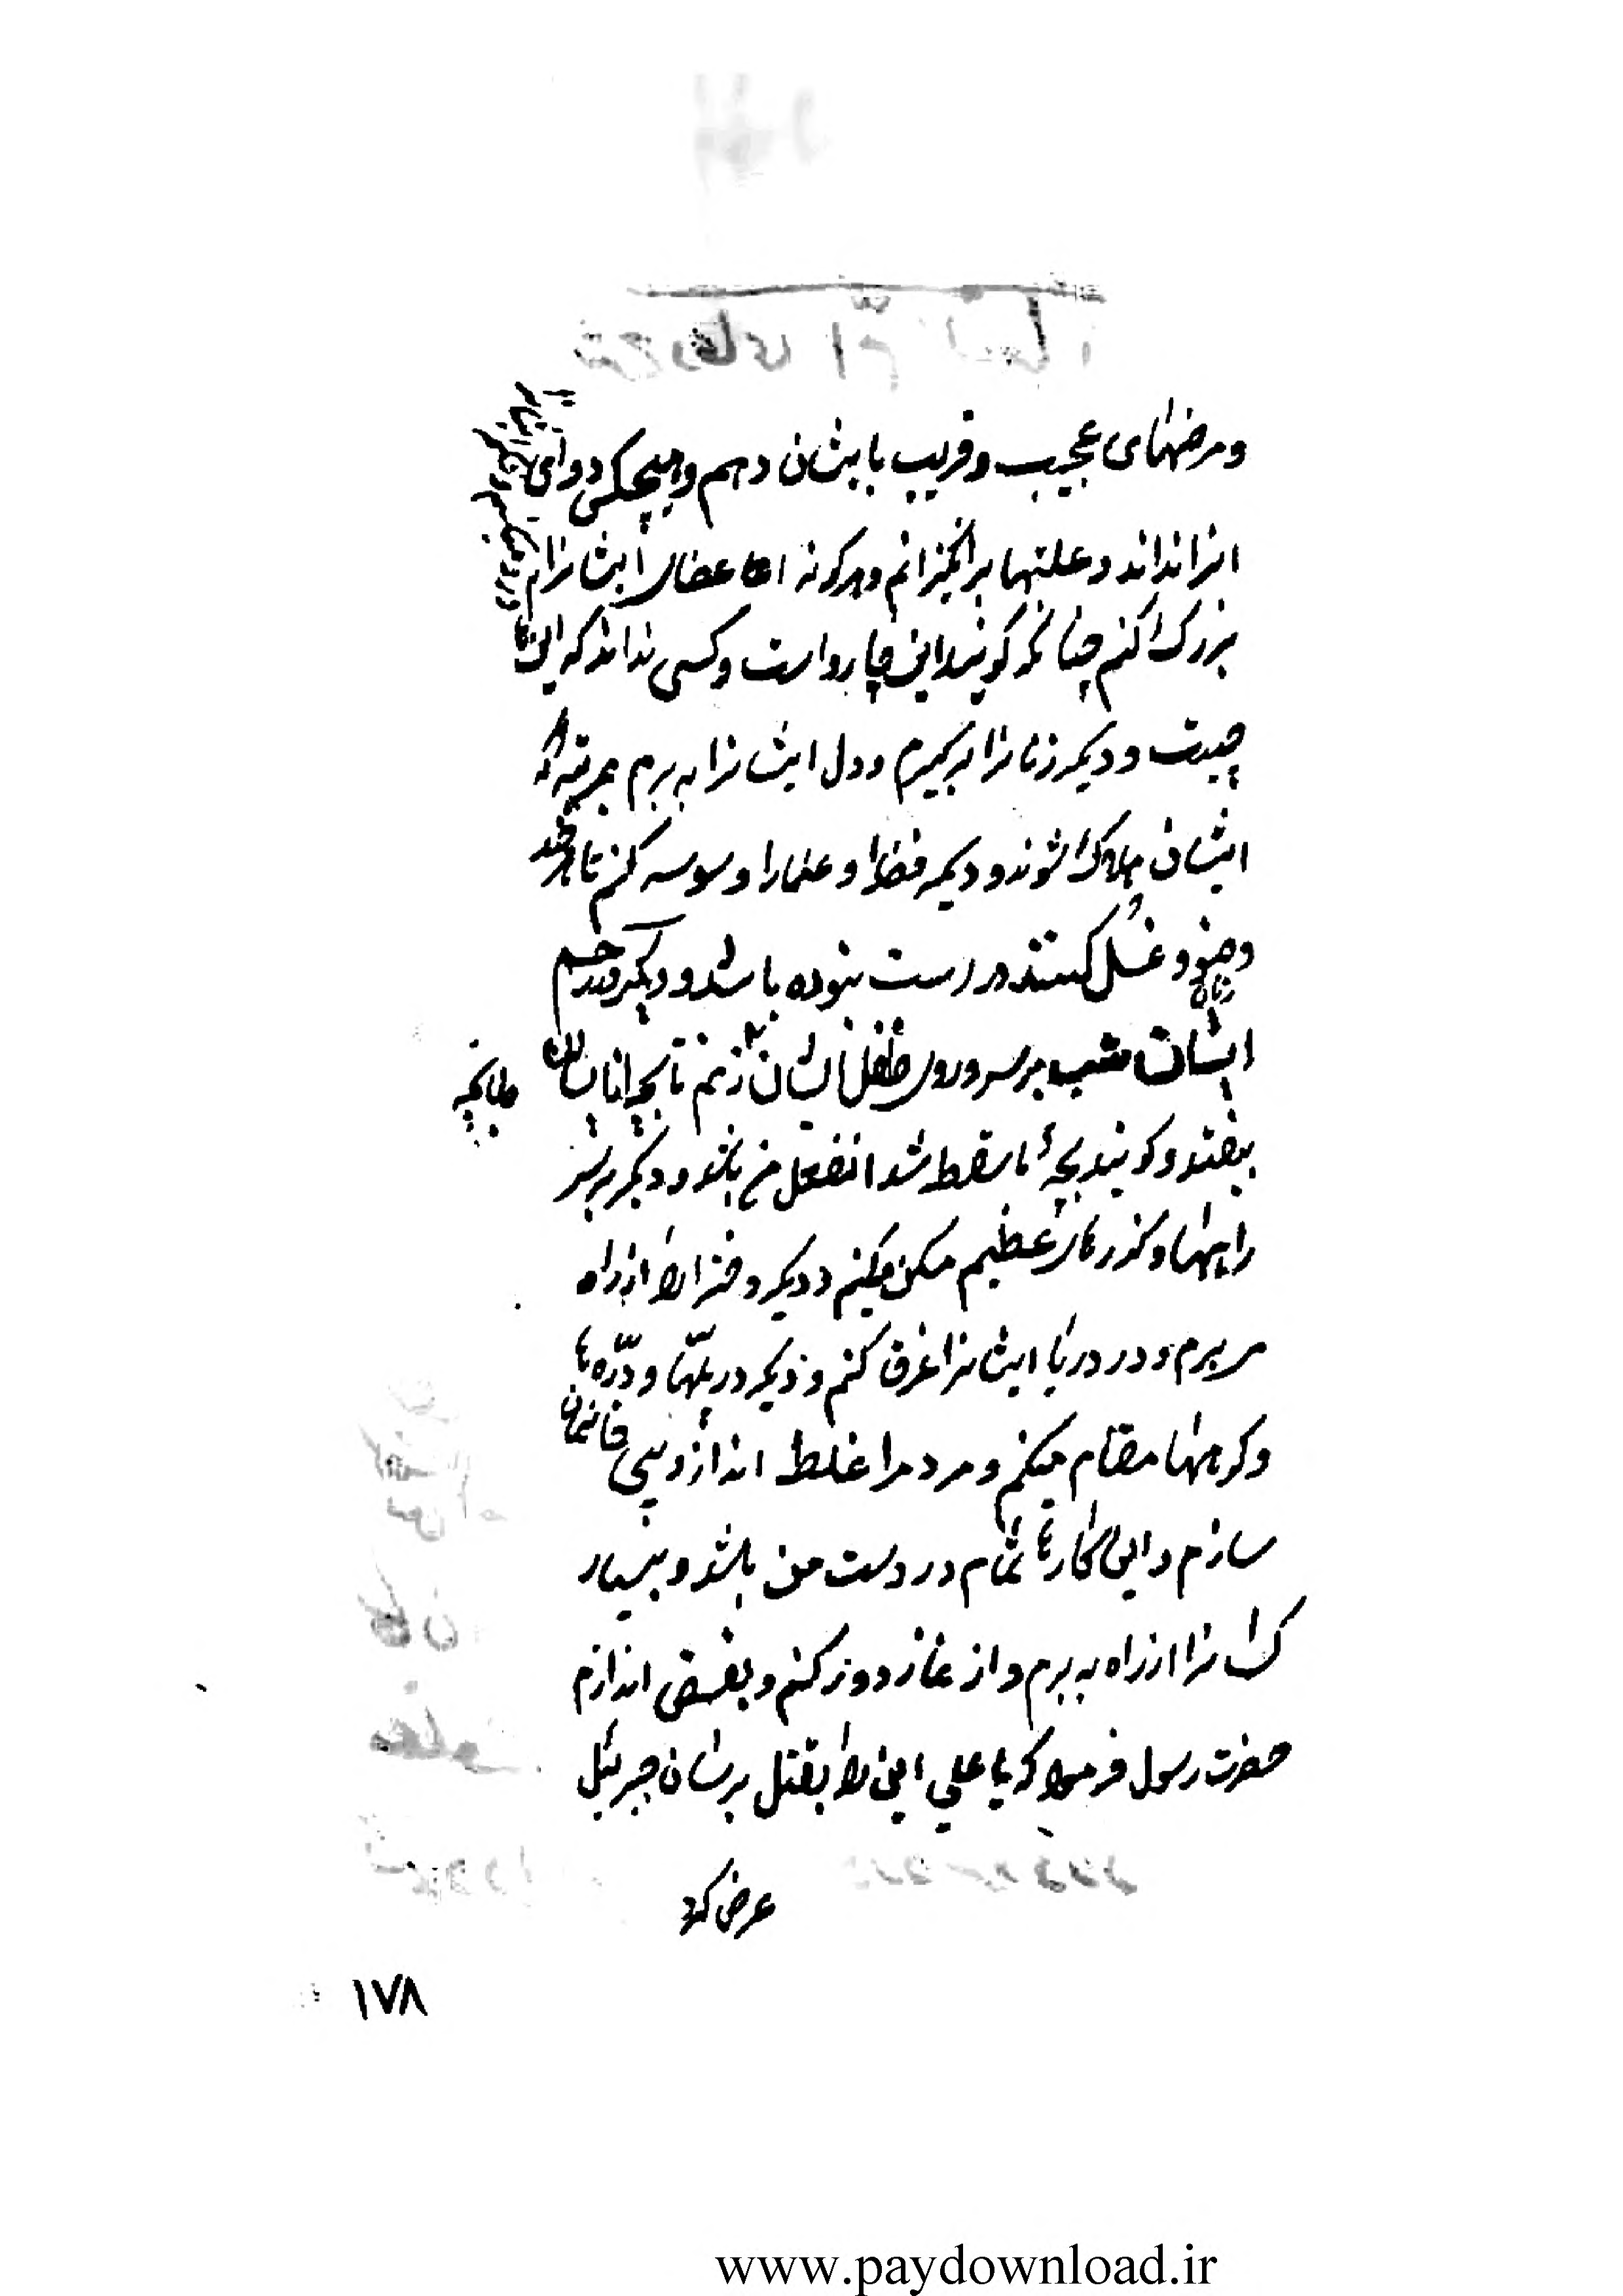 ومرضهای عجیب وقریب بایشان دهم وهیچکس دوای
انرا نداند وعلتها برانگیزانم وهرگونه اعضای ایشانرا
بزرگ کنم چنانکه گویند این چارواست وکسی نداند که این
چیست ودیگر زنانرا برگیرم ودل ایشانرا به برم بمرتبه که
ایشان هلاک شوند ودیگر فضلا وعلما را وسوسه کنم تا هرچند
وضو وغسل کنند درست نبوده باشد ودیگر در رحم
زنان
ایشان شب بر سر وروی طفل ایشان زنم تا بچه
طپانچه
بیفتد وگویند بچهٔ ما سقط شد انفعل من باشد ودیگر بر سر
راهها وگذرهای عظیم مکن میکنم ودیگر دختران را از راه
میبرم ودر دریا ایشانرا غرق کنم ودیگر در پلها ودرّه ها
وکوهها مقام میکنم ومردمرا غلط اندازم وبی خانمان
سازم واین کارها تمام در دست من باشد وبسیار
کسانرا از راه به برم واز نماز دور کنم وبفسق اندازم
حضرت رسول فرمود که یا علی این را بقتل برسان جبرئیل
عرض کرد
۱۷۸
www.paydownload.ir